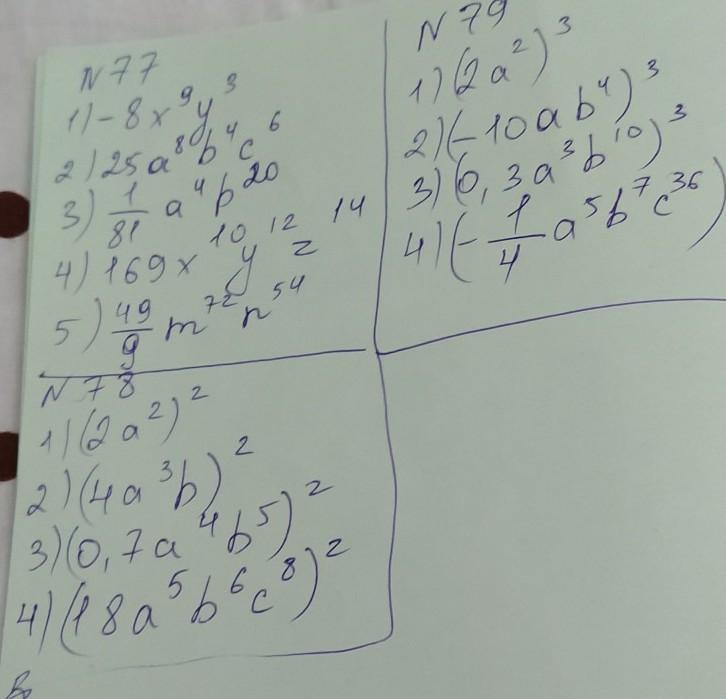 N 77
1) -8x⁹y³
2) 25a⁸b⁴c⁶
3) 1/81 a⁴b²⁰
4) 169x¹⁰y¹²z¹⁴
5) 49/9 m⁷²n⁵⁴
N 78
1) (2a²)²
2) (4a³b)²
3) (0,7a⁴b⁵)²
4) (18a⁵b⁶c⁸)²
N 79
1) (2a²)³
2) (-10ab⁴)³
3) (0,3a³b¹⁰)³
4) (-1/4 a⁵b⁷c³⁶)